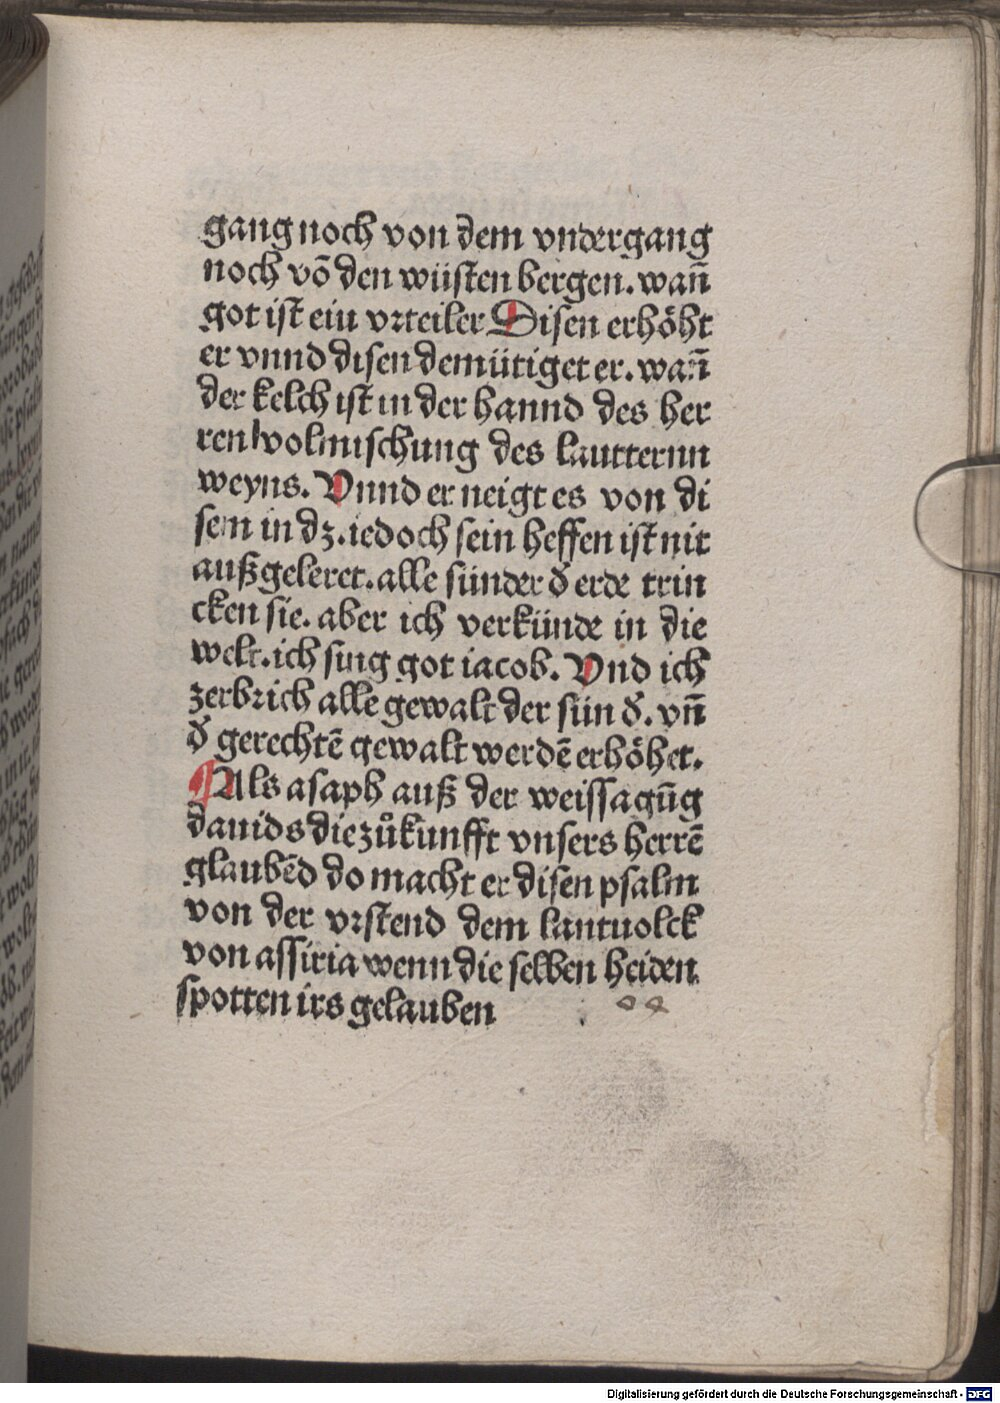 gang noch von dem vndergang
noch võ den wüsten bergen. wañ
got ist ein vrteiler Disen erhöht
er vnnd disen demütiget er. wañ
der kelch ist in der hannd des her
ren volmischung des lautternn
weyns. Vnnd er neigt es von di
sem in dz. iedoch sein heffen ist nit
außgeleret. alle sünder đ erde trin
cken sie. aber ich verkünde in die
welt. ich sing got iacob. Vnd ich
zerbrich alle gewalt der sün đ. vñ
đ gerechtē gewalt werdē erhöhet.
Als asaph auß der weissagūg
dauids die zůkunfft vnsers herrē
glaubēd do macht er disen psalm
von der vrstend dem lantuolck
von assiria wenn die selben heiden
spotten irs gelauben
Digitalisierung gefördert durch die Deutsche Forschungsgemeinschaft - DFG